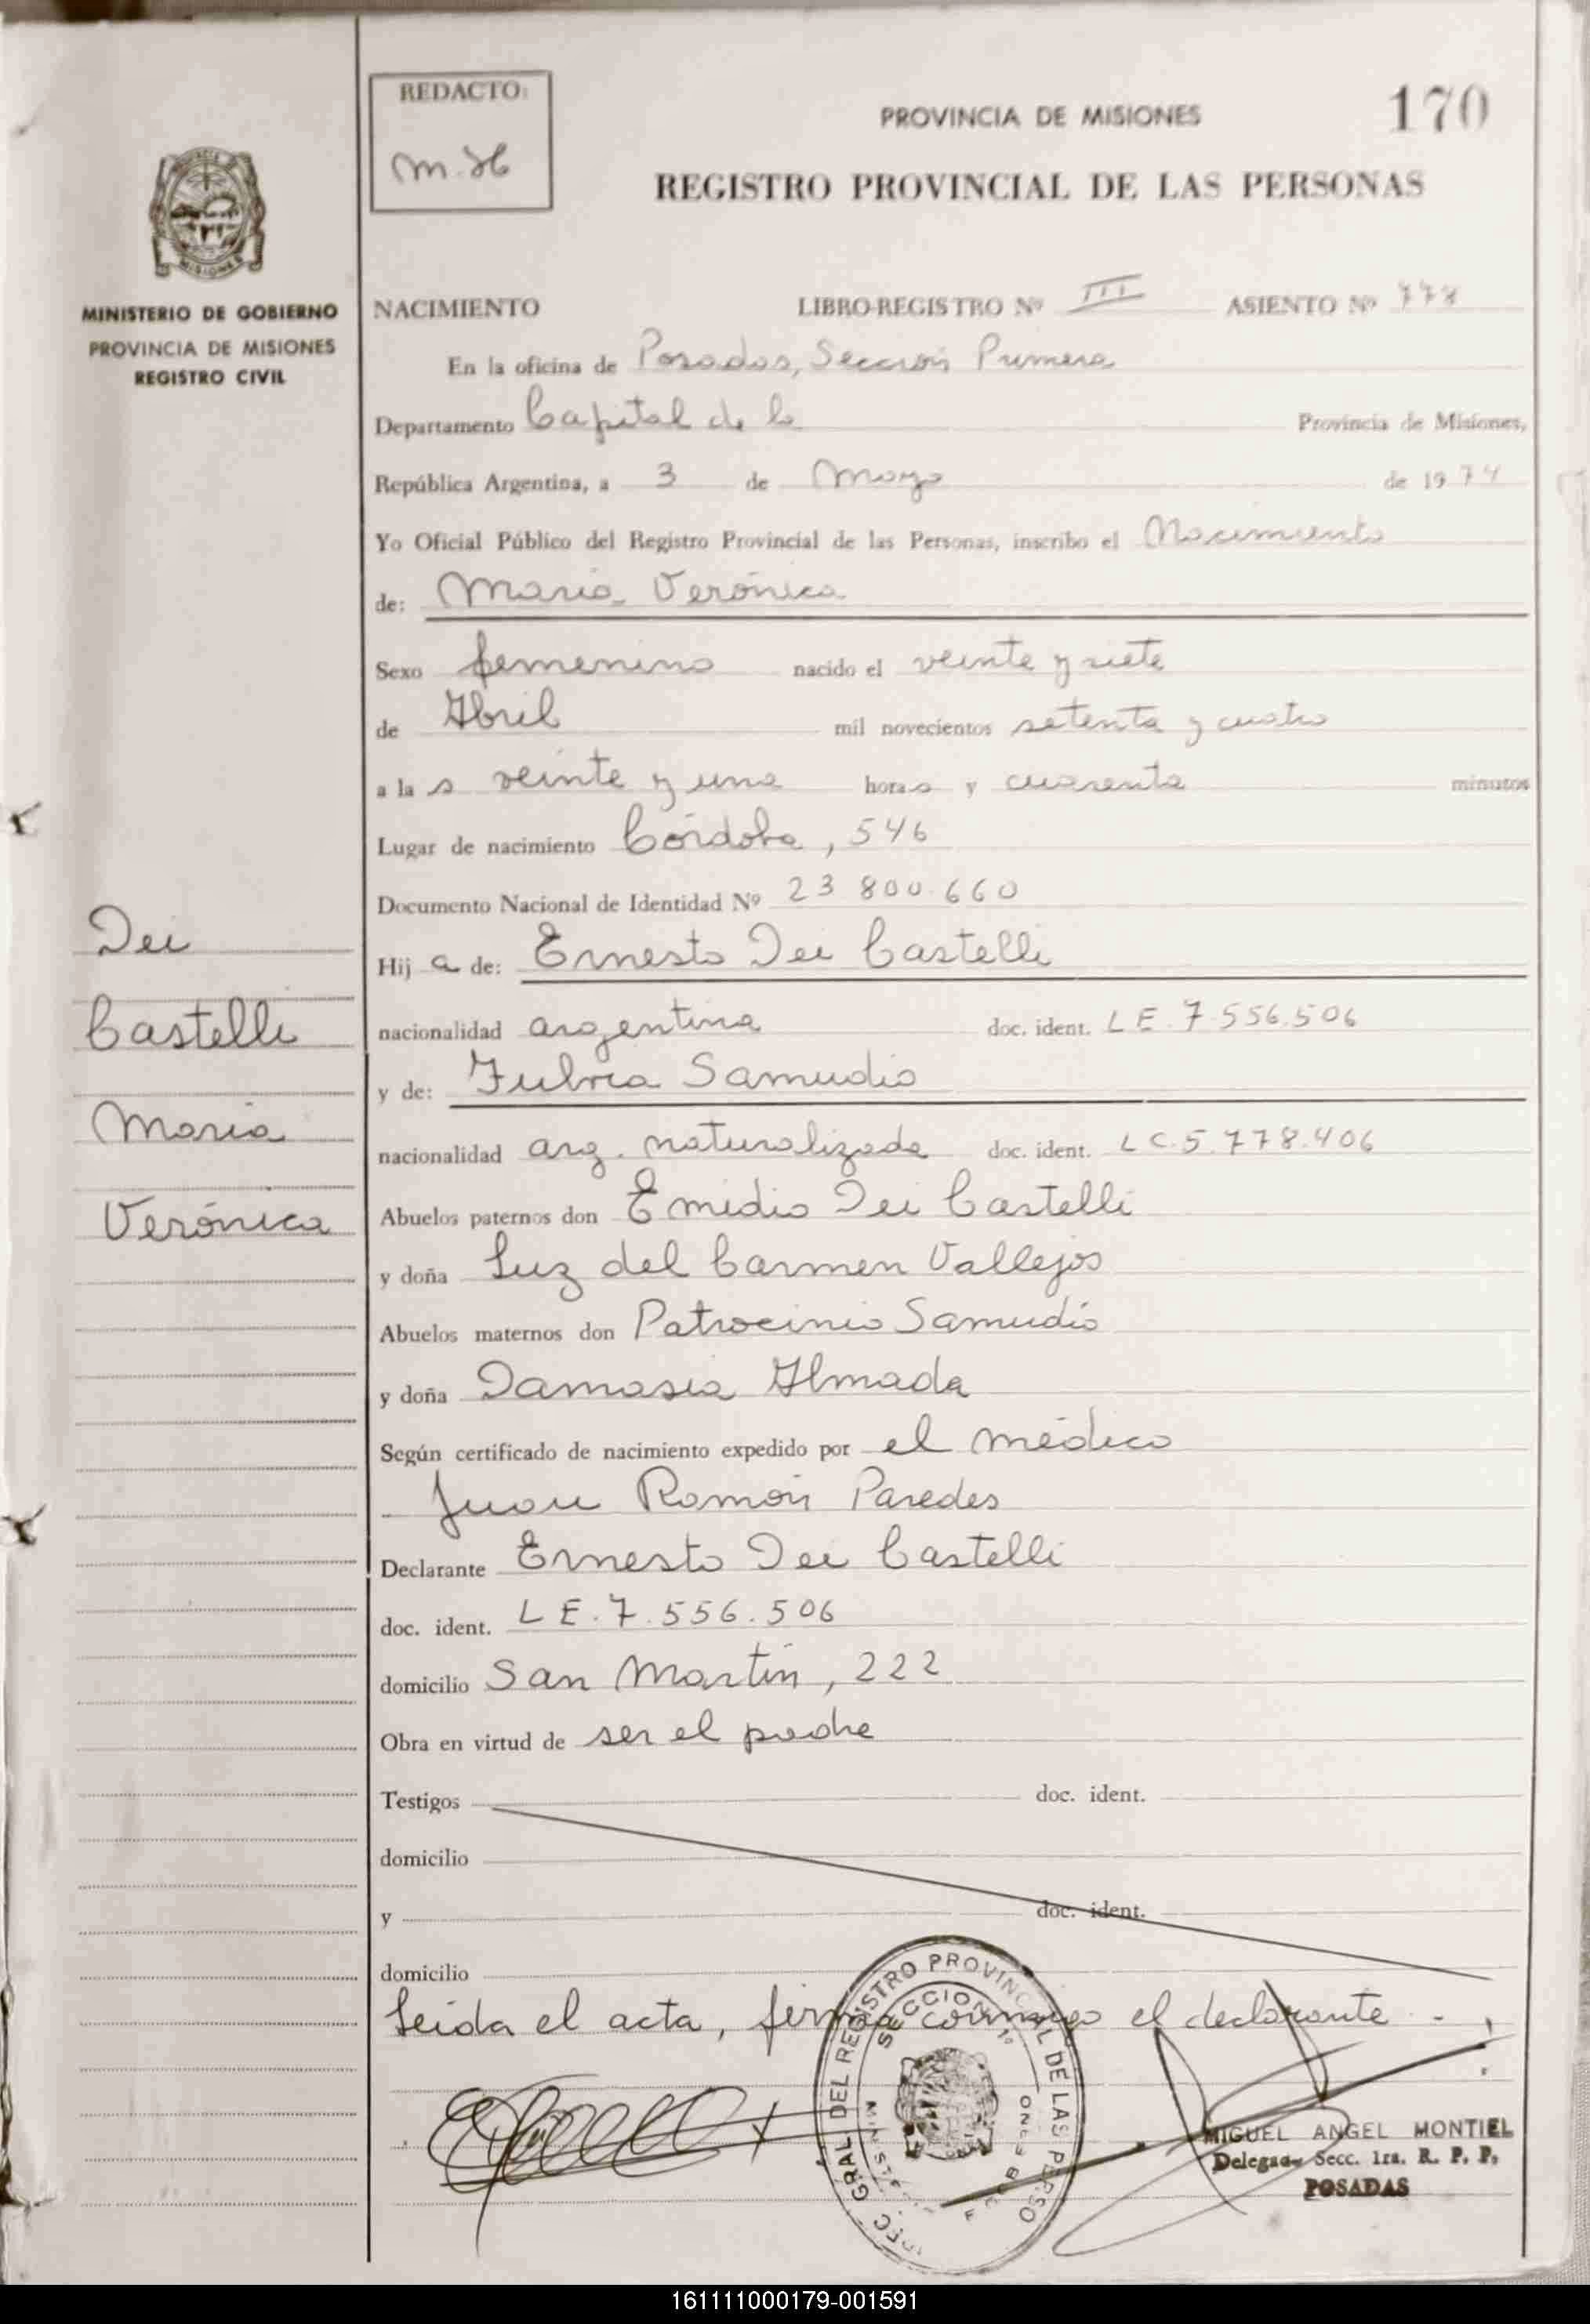 REDACTO:
PROVINCIA DE MISIONES
170
REGISTRO PROVINCIAL DE LAS PERSONAS
MISIONES
MINISTERIO DE GOBIERNO
PROVINCIA DE MISIONES
REGISTRO CIVIL
NACIMIENTO LIBRO-REGISTRO Nº III ASIENTO Nº 778
En la oficina de Posadas, Sección Primera
Departamento Capital de la Provincia de Misiones,
República Argentina, a 3 de Mayo de 1974
Yo Oficial Público del Registro Provincial de las Personas, inscribo el Nacimiento
de: María Verónica
Sexo femenino nacido el veinte y siete
de Abril mil novecientos setenta y cuatro
a la s veinte y una hora s y cuarenta minutos
Lugar de nacimiento Córdoba, 546
Documento Nacional de Identidad Nº 23 800.660
Dei
Castelli
María
Verónica
Hij a de: Ernesto Dei Castelli
nacionalidad argentina doc. ident. L E. 7 556.506
y de: Fulvia Samudio
nacionalidad arg. naturalizada doc. ident. L C. 5.778.406
Abuelos paternos don Emidio Dei Castelli
y doña Luz del Carmen Vallejos
Abuelos maternos don Patrocinio Samudio
y doña Damasia Almada
Según certificado de nacimiento expedido por el médico
Juan Ramón Paredes
Declarante Ernesto Dei Castelli
doc. ident. L E. 7.556.506
domicilio San Martín, 222
Obra en virtud de ser el padre
Testigos doc. ident.
domicilio
y doc. ident.
domicilio
Leida el acta, firma conmigo el declarante.-
GRAL DEL REGISTRO PROVINCIAL DE LAS PERSO
SECCION 1º
MIGUEL ANGEL MONTIEL
Delegado Secc. 1ra. R. P. P.
POSADAS
161111000179-001591